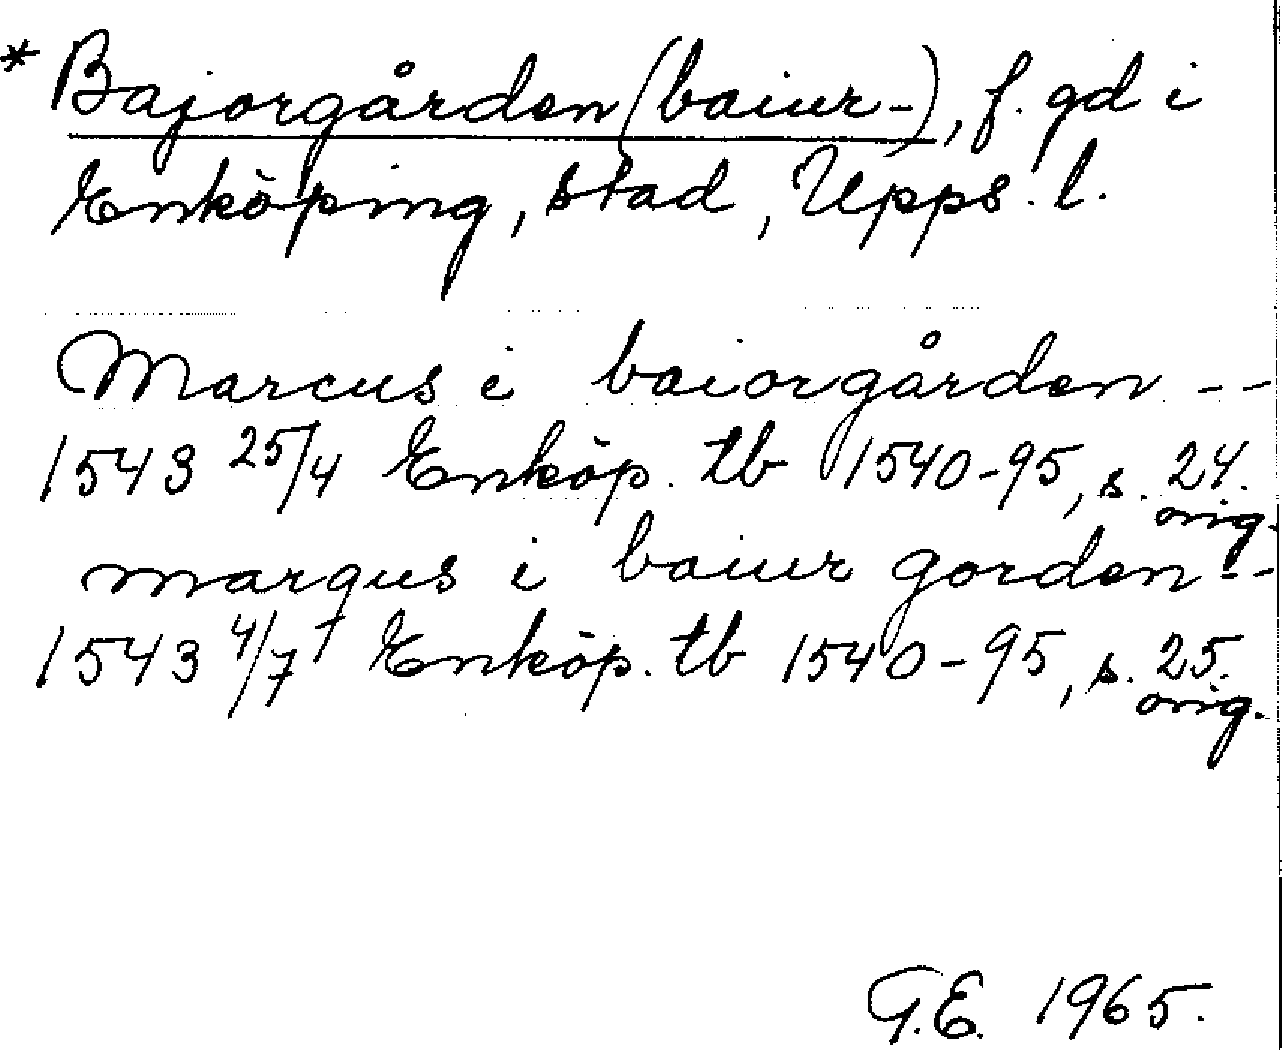 * Bajorgården (baiur-), f. gd i
Enköping, stad, Upps. l.
Marcus i baiorgården --
1543 25/4 Enköp. tb 1540-95, s. 24.
orig.
marqus i baiur gorden --
1543 4/7 Enköp. tb 1540-95, s. 25.
orig.
G.E. 1965.